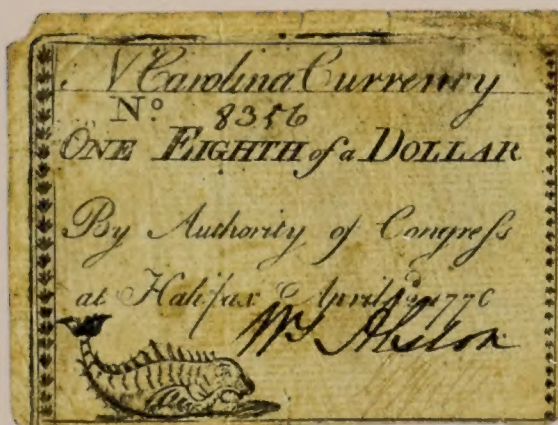 N Carolina Currency
No. 8356
ONE EIGHTH of a DOLLAR
By Authority of Congreſs
at Halifax April 2d 1776